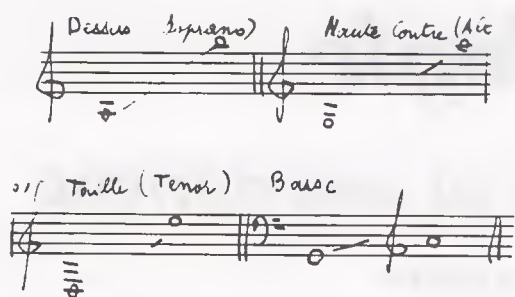 Dessus (Soprano) Haute Contre (Alt
Taille (Tenor) Basse